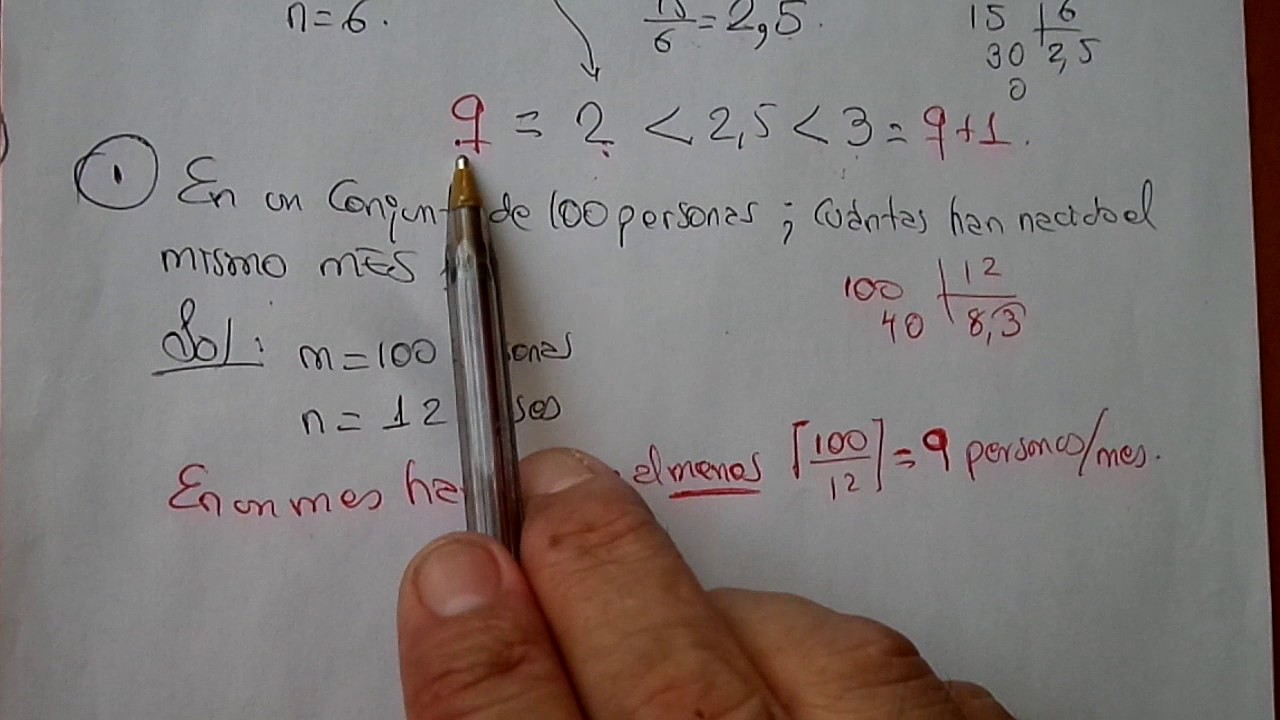 n=6.
15/6=2,5.
15 6
30 2,5
0
q = 2 < 2,5 < 3 = q+1.
1 En un de 100 personas ; cuántas han nacido el
mismo MES
100 12
40 8,3
Sol: m=100
n=12
En un mes al menos ⌈100/12⌉=9 personas/mes.